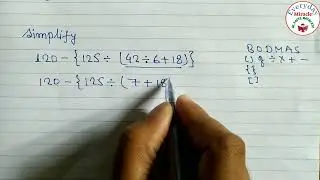 Simplify
120-{125÷(42÷6+18)}
120-{125÷(7+18
BODMAS
() of ÷ × + -
{}
[]
Everyday